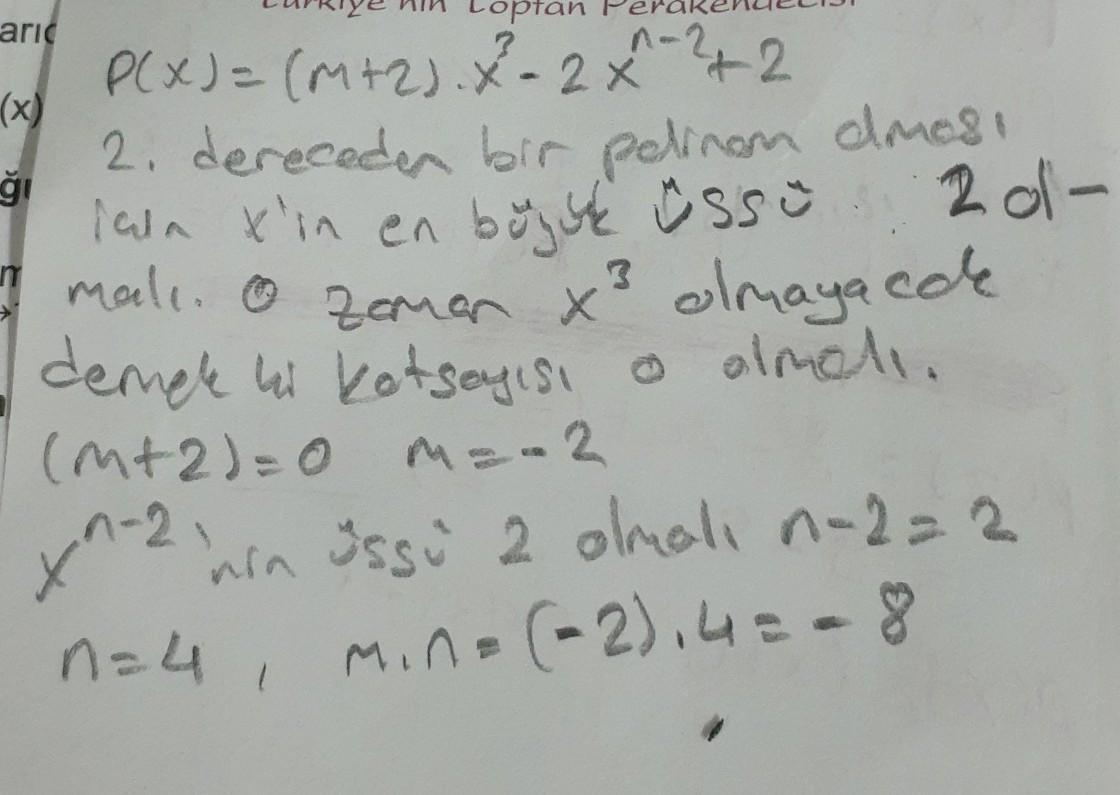 Türkiye'nin Toptan Perakendecisi
arıc
(x)
ğı
P(x) = (m+2).x³ - 2x^(n-2) + 2
2. dereceden bir polinom olması
için x'in en büyük üssü 2 ol-
malı. O zaman x³ olmayacak
demek ki katsayısı 0 olmalı.
(m+2)=0 m=-2
x^(n-2)'nin üssü 2 olmalı n-2=2
n=4, m.n=(-2).4=-8